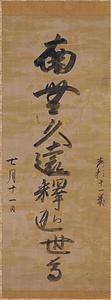 南無久遠釋迦世尊
七月十一日